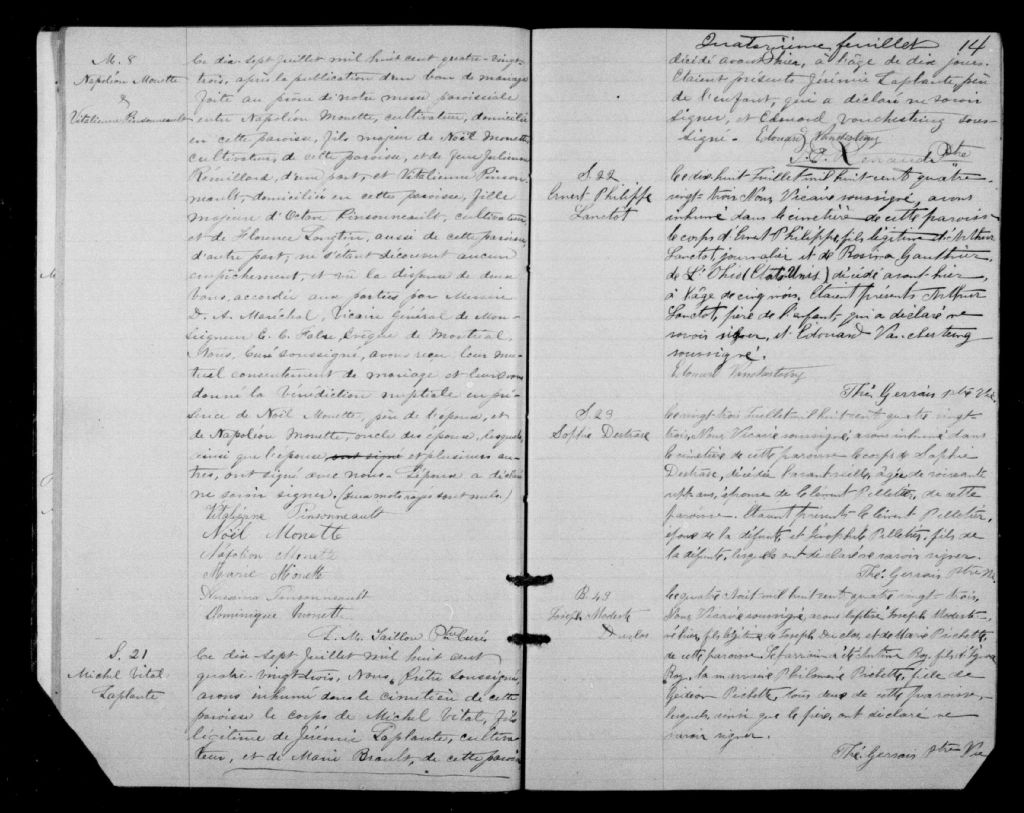 M. 8
Napoléon Monette
&
Vitalienne Pinsonneault
Ce dix sept Juillet mil huit cent quatre-vingt
trois, après la publication d'un ban de mariage
faite au prône de notre messe paroissiale
entre Napoléon Monette, cultivateur, domicilié
en cette paroisse, fils majeur de Noël Monette
cultivateur, de cette paroisse, et de feue Julienne
Rémillard, d'une part, et Vitalienne Pinson-
neault, domiciliée en cette paroisse, fille
majeure d'Octave Pinsonneault, cultivateur
et de Florence Longtin, aussi de cette paroisse
d'autre part, ne s'étant découvert aucun
empêchement, et vu la dispense de deux
bans, accordée aux parties par Messire
D. A. Maréchal, Vicaire Général de Mon-
seigneur E. C. Fabre, Evêque de Montréal,
Nous, Curé soussigné, avons reçu leur mu-
tuel consentement de mariage et leur avons
donné la bénédiction nuptiale en pré-
sence de Noël Monette, père de l'époux, et
de Napoléon Monette, oncle des époux, lesquels
ainsi que l'épouse, sont signé et plusieurs au-
tres, ont signé avec nous. L'époux a déclaré
ne savoir signer. (deux mots rayés sont nuls.)
Vitaliénne Pinsonneault
Noël Monette
Napoléon Monette
Marie Monette
Pinsonneault
Dominique Monette
L. M. Taillon Ptre Curé
S. 21
Michel Vital
Laplante
Ce dix-sept Juillet mil huit cent
quatre vingt trois, Nous, Prêtre soussigné,
avons inhumé dans le cimetière de cette
paroisse le corps de Michel Vital, fils
légitime de Jérémie Laplante, cultiva-
teur, et de Marie Brault, de cette paroisse
Quatorzième feuillet 14
décédé avant hier, à l'âge de dix jours.
Etaient présents Jérémie Laplante, père
de l'enfant, qui a déclaré ne savoir
signer, et Edouard Vanchesteing sous-
signé. Edouard Vanchesteing
Renaud Ptre
S. 22
Ernest Philippe
Lanctôt
Ce dix huit Juillet mil huit cent quatre-
vingt trois Nous Vicaire soussigné, avons
inhumé dans le cimetière de cette paroisse
le corps d'Ernest Philippe, fils légitime d'Arthur
Lanctot, journalier et de Rosina Gauthier,
de L'Ohio (Etats Unis) décédé avant hier,
à l'âge de cinq mois. Etaient présents Arthur
Lanctot, père de l'enfant, qui a déclaré ne
savoir signer, et Edouard Vanchesteing
soussigné.
Edouard Vanchesteing
Thé. Gervais ptre Vic.
S. 23
Sophie Destrase
Ce vingt trois Juillet mil huit cent quatre vingt
trois, Nous Vicaire soussigné, avons inhumé dans
le cimetière de cette paroisse le corps de Sophie
Destrase, décédée l'avant veille, âgée de soixante
sept ans, épouse de Clément Pelletier, de cette
paroisse. Etaient présents Clément Pelletier,
époux de la défunte, et Théophile Pelletier, fils de
la défunte, lesquels ont déclaré ne savoir signer.
Thé. Gervais Ptre Vic.
B. 43
Joseph Modeste
Duclos
Ce quatre Août mil huit cent quatre vingt trois,
Nous Vicaire soussigné avons baptisé Joseph Modeste
né hier, fils légitime de Joseph Duclos, et de Marie Pichette,
de cette paroisse. Le parrain a été Roy, fils
Roy, la marraine Philomène Pichette, fille de
Gédéon Pichette, tous deux de cette paroisse,
lesquels, ainsi que le père, ont déclaré ne
savoir signer.
Thé. Gervais Ptre Vic